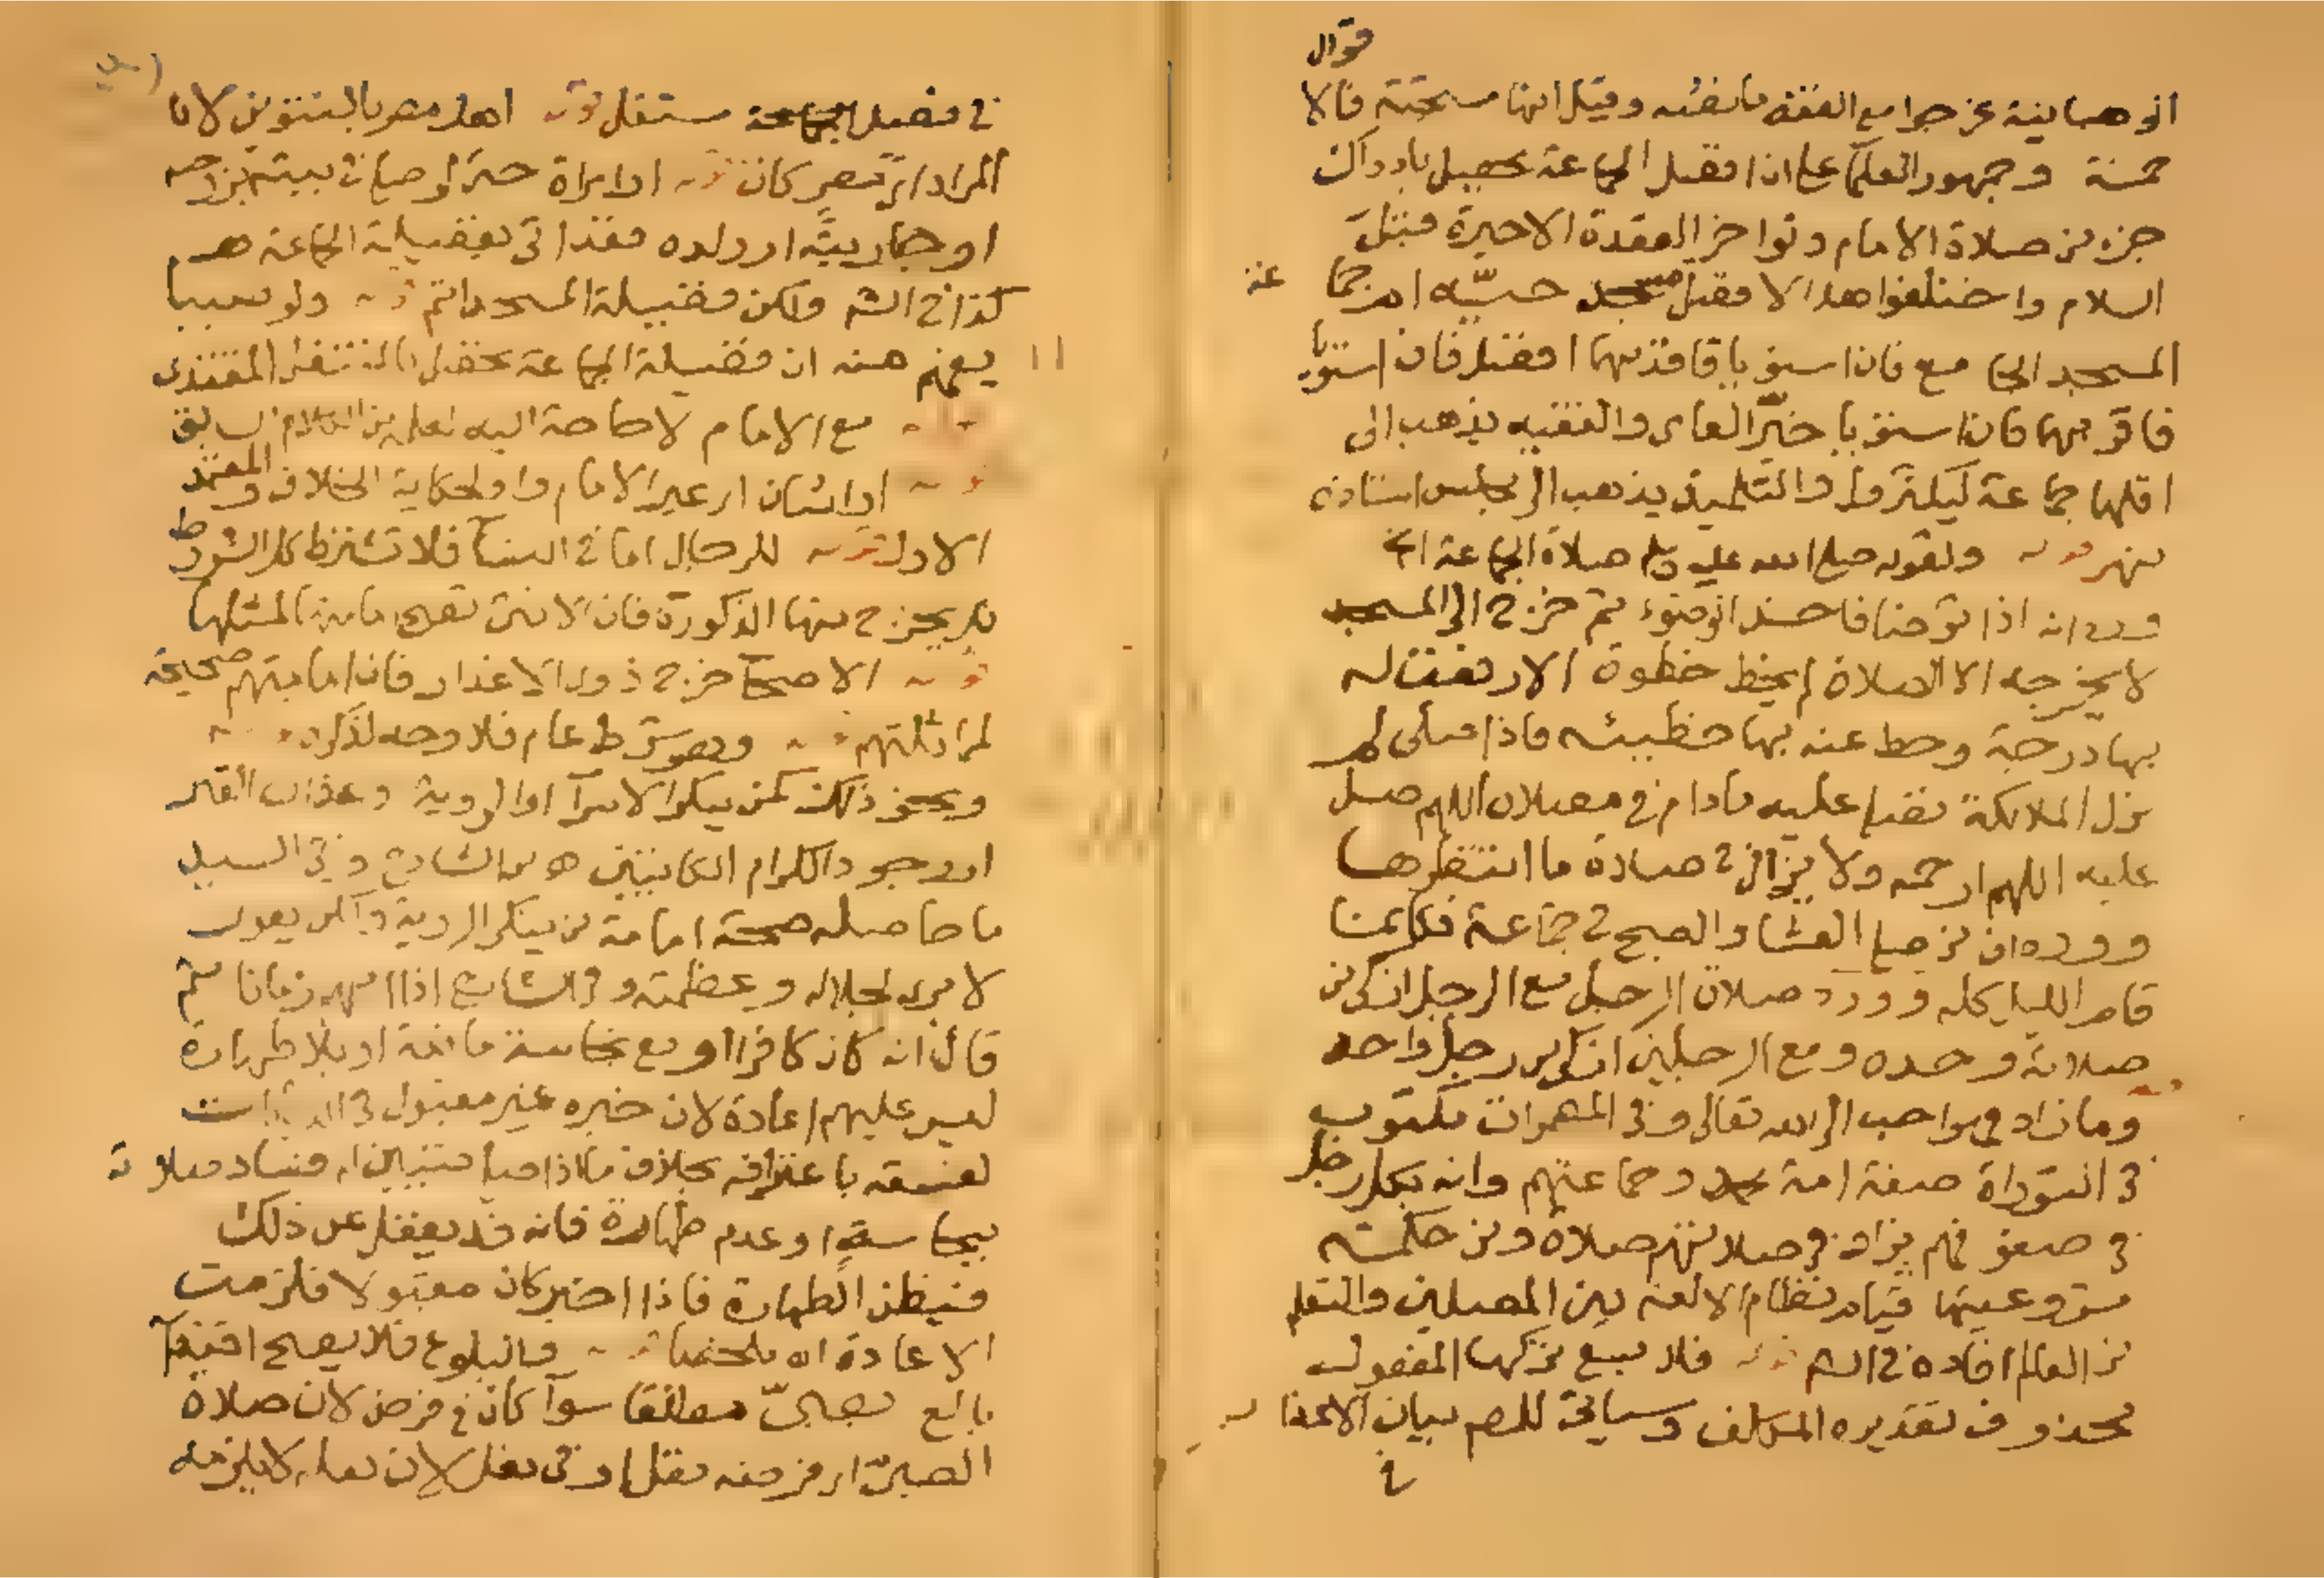 قوال
الوهبانية عن جوامع الفقه ما نصه وقيل انها مستحبة فالا
حسنة وجمهور العلما على ان افضل الجماعة تحصيل بادراك
جزء من صلاة الامام ولو اخر القعدة الاخيرة قبل
السلام واختلفوا هل الافضل مسجد حيه ام جما عة
المسجد الجامع فان استويا فاقدمهما افضل فان استويا
فاقربهما فان استويا خير العامي والفقيه يذهب الى
اقلهما جماعة ليكثروا والتلميذ يذهب الى مجلس استاذه
نهر قوله ولقوله صلى الله عليه صلاة الجماعة الخ
وورد انه اذا توضا فاحسن الوضوء ثم خرج الى المسجد
لا يخرجه الا الصلاة لم يخط خطوة الا رفعت له
بها درجة وحط عنه بها خطيئته فاذا صلى لم
تزل الملائكة تصلي عليه ما دام في مصلاه اللهم صل
عليه اللهم ارحمه ولا يزال في صلاة ما انتظرها
وورد ان من صلى العشا والصبح في جماعة فكانما
قام الليل كله وورد صلاة الرجل مع الرجل ازكى من
صلاته وحده ومع الرجلين ازكى من رجل واحد
وما زاد فهو احب الى الله تعالى وفي المضمرات مكتوب
في التوراة صفة امة محمد وجماعتهم وانه بكل رجل
في صفوفهم يزاد في صلاتهم صلاة ومن حكمة
مشروعيتها قيام نظام الالفة بين المصلين والتعلم
من العالم افاده في الشر قوله فلا يسع تركها المفعول
محذوف تقديره المكلف وسياتي للمص بيان الاعذا ر
في فضل الجماعة مستقل قوله اهل مصر بالتنوين لان
المراد اي مصر كان قوله او امراة حتى لو صلى في بيته بزوجته
او جاريته او ولده فقد اتى بفضيلة الجماعة
كذا في الشر ولكن فضيلة المسجد اتم قوله ولو صبيا
يفهم منه ان فضيلة الجماعة تحصل بالمتنفل المقتدى
قوله مع الامام لا حاجة اليه لعلمه من الكلام السابق
قوله او اثنان اي غير الامام واو لحكاية الخلاف والمعتمد
الاول قوله للرجال اما في النسا فلا تشترط كل الشروط
بل يخرج منها الذكورة فان الانثى تصح امامتها لمثلها
قوله الاصحا خرج ذوي الاعذار فان امامتهم صحيحة
لمماثلتهم قوله وهو شرط عام فلا وجه لذكره قوله
ونحو ذلك كمن ينكر الاسرا او الروية وعذاب القبر
او وجود الكرام الكاتبين هو من الشارح وفي السيد
ما حاصله صحة امامة من ينكر الروية ولكن يقول
لا يرى لجلاله وعظمته وفي الشارح اذا امهم زمانا ثم
قال انه كان كافرا او مع نجاسة مانعة او بلا طهارة
ليس عليهم اعادة لان خبره غير مقبول في الديانات
لفسقه باعترافه بخلاف ما اذا صلى فتبين له فساد صلاته
بنجاسة او عدم طهارة فانه قد يغفل عن ذلك
فيظن الطهارة فاذا اخبر كان مقبولا فلزمت
الاعادة اه ملخصا قوله والبلوغ فلا يصح اقتدا
بالغ بصبي مطلقا سوا كان في فرض لان صلاة
الصبي او فرضه نفل او في نفل لان نفله لا يلزمه